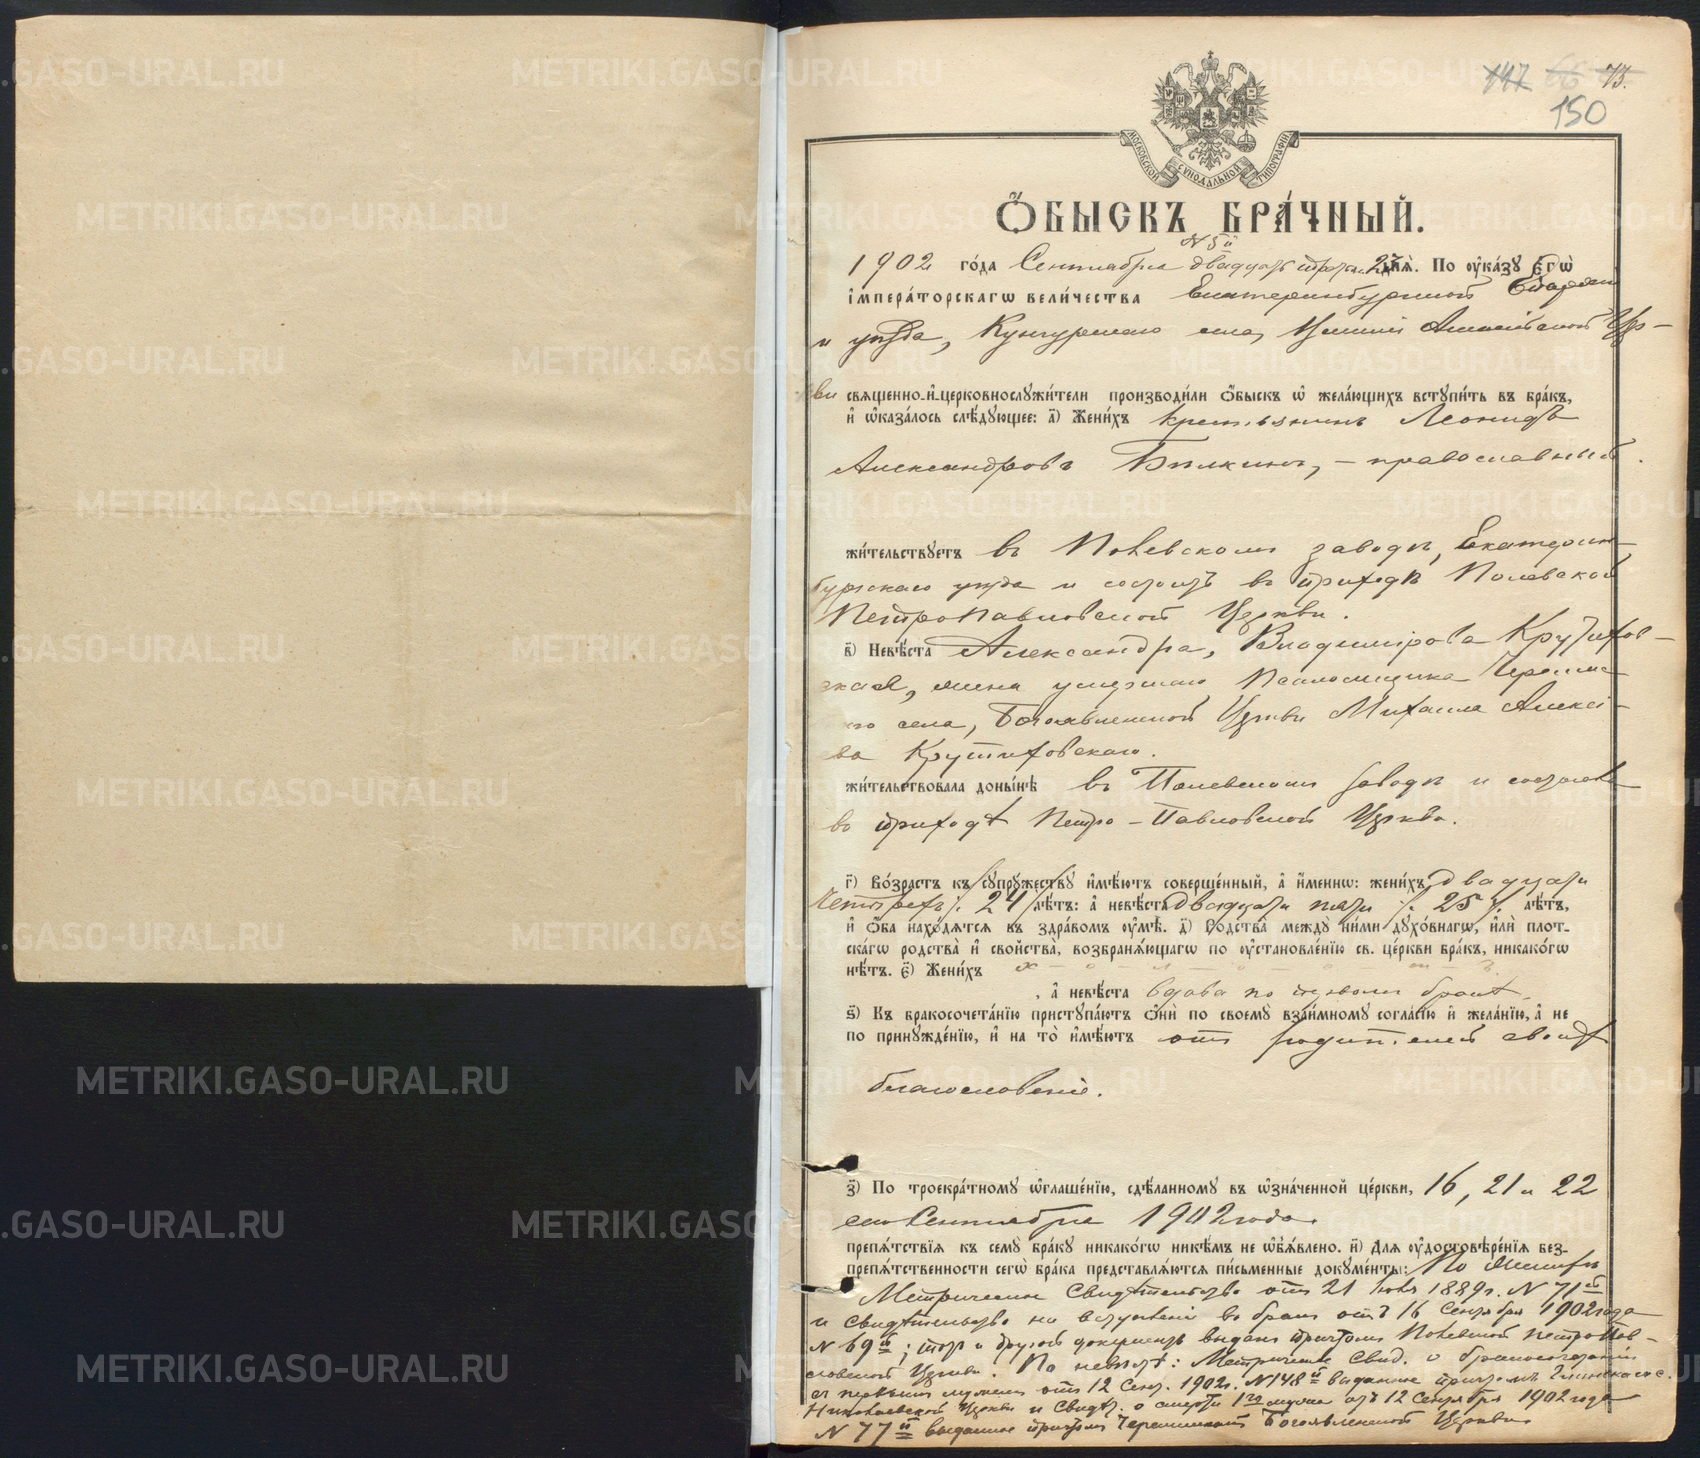 147 66 73.
150
МОСКОВСКОЙ СУНОДАЛЬНОЙ ТИПОГРАФІИ
Ѻ҆БЫСКЪ БРА́ЧНЫЙ.
N 5й
1902 го́да Сентября двадцать третьяго дня̀. По ᲂу҆ка́зꙋ Є҆гѡ̀
і҆мпера́торскагѡ вели́чества Екатеринбургской Епархіи
и уѣзда, Кунгурскаго села, Цер-
кви свѧще́нно-и҆-церковнослꙋжи́тели производи́ли ѻ҆́быскъ ѡ҆ жела́ющихъ встꙋпи́ть въ бра́къ,
и҆ ѡ҆каза́лось слѣ́дꙋющее: а҃) Жени́хъ крестьянинъ Леонидъ
Александровъ Бѣлкинъ, - православный.
жи́тельствꙋетъ въ Полевскомъ заводѣ, Екатерин-
бургскаго уѣзда и состоитъ въ приходѣ Полевской
Петропавловской Церкви.
в҃) Невѣ́ста Александра, Владимірова Крутихов-
ская, жена умершаго Псаломщика
села, Богоявленской Церкви Михаила Алексѣ-
ева Крутиховскаго.
жи́тельствовала доны́нѣ въ Полевскомъ заводѣ и состояла
въ приходѣ Петро-Павловской Церкви.
г҃) Во́зрастъ къ сꙋпрꙋ́жествꙋ и҆мѣ́ютъ соверше́нный, а҆ и҆́меннѡ: жени́хъ двадцати
четырехъ /. 24 /. лѣ́тъ: а҆ невѣ́ста двадцати пяти /. 25 /. лѣ́тъ,
и҆ ѻ҆́ба нахо́дѧтсѧ въ здра́вомъ ᲂу҆мѣ̀. д҃) Родства̀ междꙋ̀ ни́ми дꙋхо́внагѡ, и҆лѝ плот-
ска́гѡ родства̀ и҆ сво́йства̀, возбранѧ́ющагѡ по ᲂу҆становле́нїю св. це́ркви бра́къ, никако́гѡ
нѣ́тъ. є҃) Жени́хъ х - о - л - о - с - т - ъ
, а҆ невѣ́ста вдова по первомъ бракѣ
ѕ҃) Къ бракосочета́нїю пристꙋпа́ютъ ѻ҆нѝ по своемꙋ̀ взаи́мномꙋ согла́сїю и҆ жела́нїю, а҆ не
по принꙋжде́нїю, и҆ на то̀ и҆мѣ́ютъ отъ родителей своихъ
благословеніе.
з҃) По троекра́тномꙋ ѡ҆глаше́нїю, сдѣ́ланномꙋ въ ѡ҆зна́ченной це́ркви, 16, 21 и 22
сего Сентября 1902 года
препѧ́тствїѧ къ семꙋ̀ бра́кꙋ никако́гѡ никѣ́мъ не ѡ҆б̾ѧ́влено. и҃) Длѧ ᲂу҆достовѣре́нїѧ без-
препѧ́тственности сегѡ̀ бра́ка представлѧ́ютсѧ пи́сьменные докꙋме́нты: По женихѣ
Метрическое Свидѣтельство отъ 21 1889 г. N 71й
и свидѣтельство на вступленіе въ бракъ отъ 16 Сентября 1902 года
N 69й; тотъ и другой документъ выданъ причтомъ Полевской Петропав-
ловской Церкви. По невѣстѣ: Метрическое Свид. о бракосочетаніи
съ первымъ мужемъ отъ 12 Сент. 1902 г. N 148й выданное причтомъ Глинскаго с.
Николаевской Церкви и Свидѣт. о смерти 1го мужа отъ 12 Сентября 1902 года
N 77й выданное причтомъ Богоявленской Церкви
METRIKI.GASO-URAL.RU